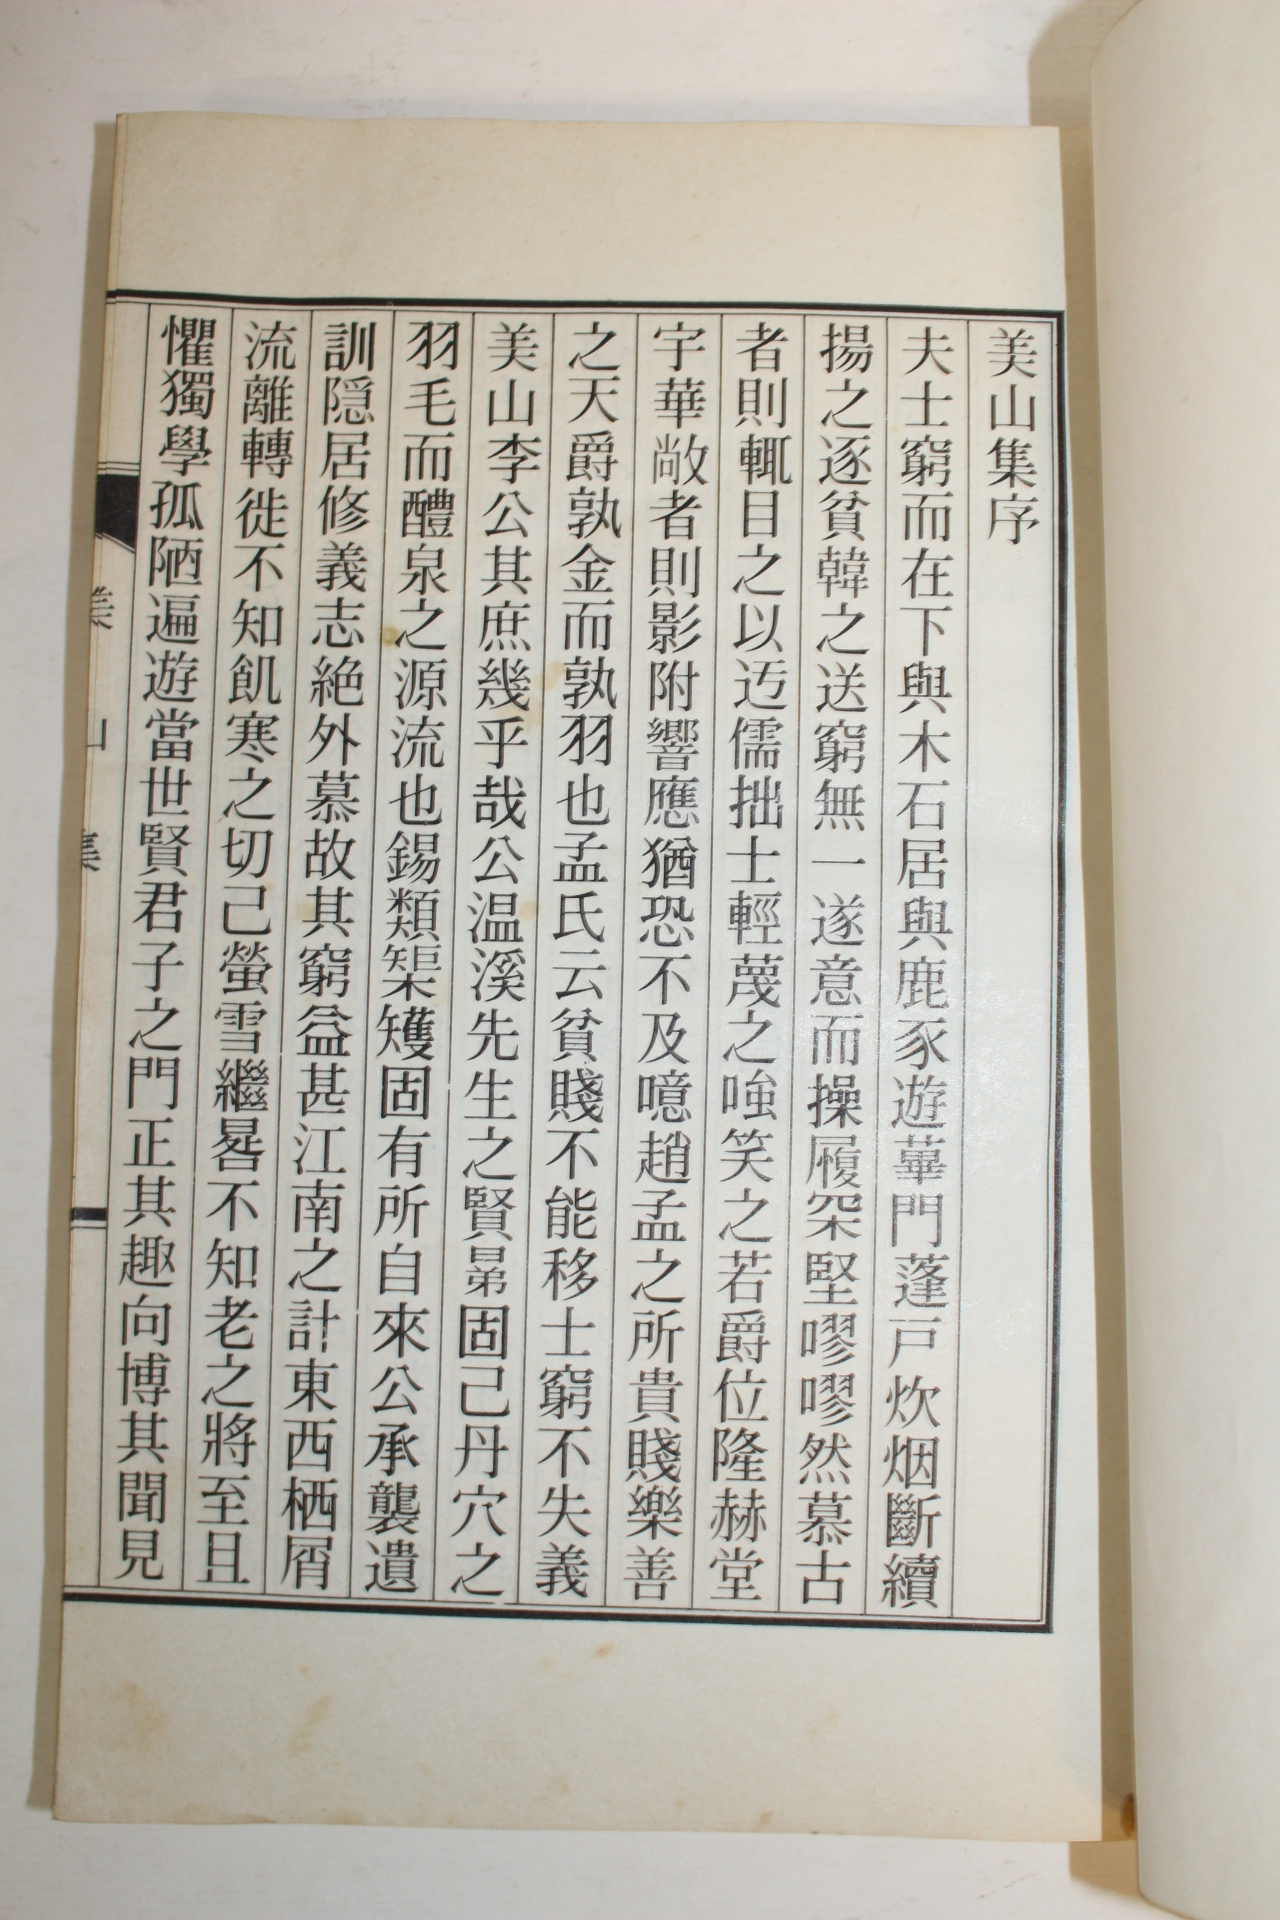 美山集序
夫士窮而在下與木石居與鹿豕遊蓽門蓬戶炊烟斷續
揚之逐貧韓之送窮無一遂意而操履罙堅嘐嘐然慕古
者則輒目之以迃儒拙士輕蔑之嗤笑之若爵位隆赫堂
宇華敞者則影附響應猶恐不及噫趙孟之所貴賤樂善
之天爵孰金而孰羽也孟氏云貧賤不能移士窮不失義
美山李公其庶幾乎哉公温溪先生之賢昆弟固己丹穴之
羽毛而醴泉之源流也錫類榘矱固有所自來公承襲遺
訓隠居修義志絶外慕故其窮益甚江南之計東西栖屑
流離轉徙不知飢寒之切己螢雪繼晷不知老之將至且
懼獨學孤陋遍遊當世賢君子之門正其趣向博其聞見
美山集